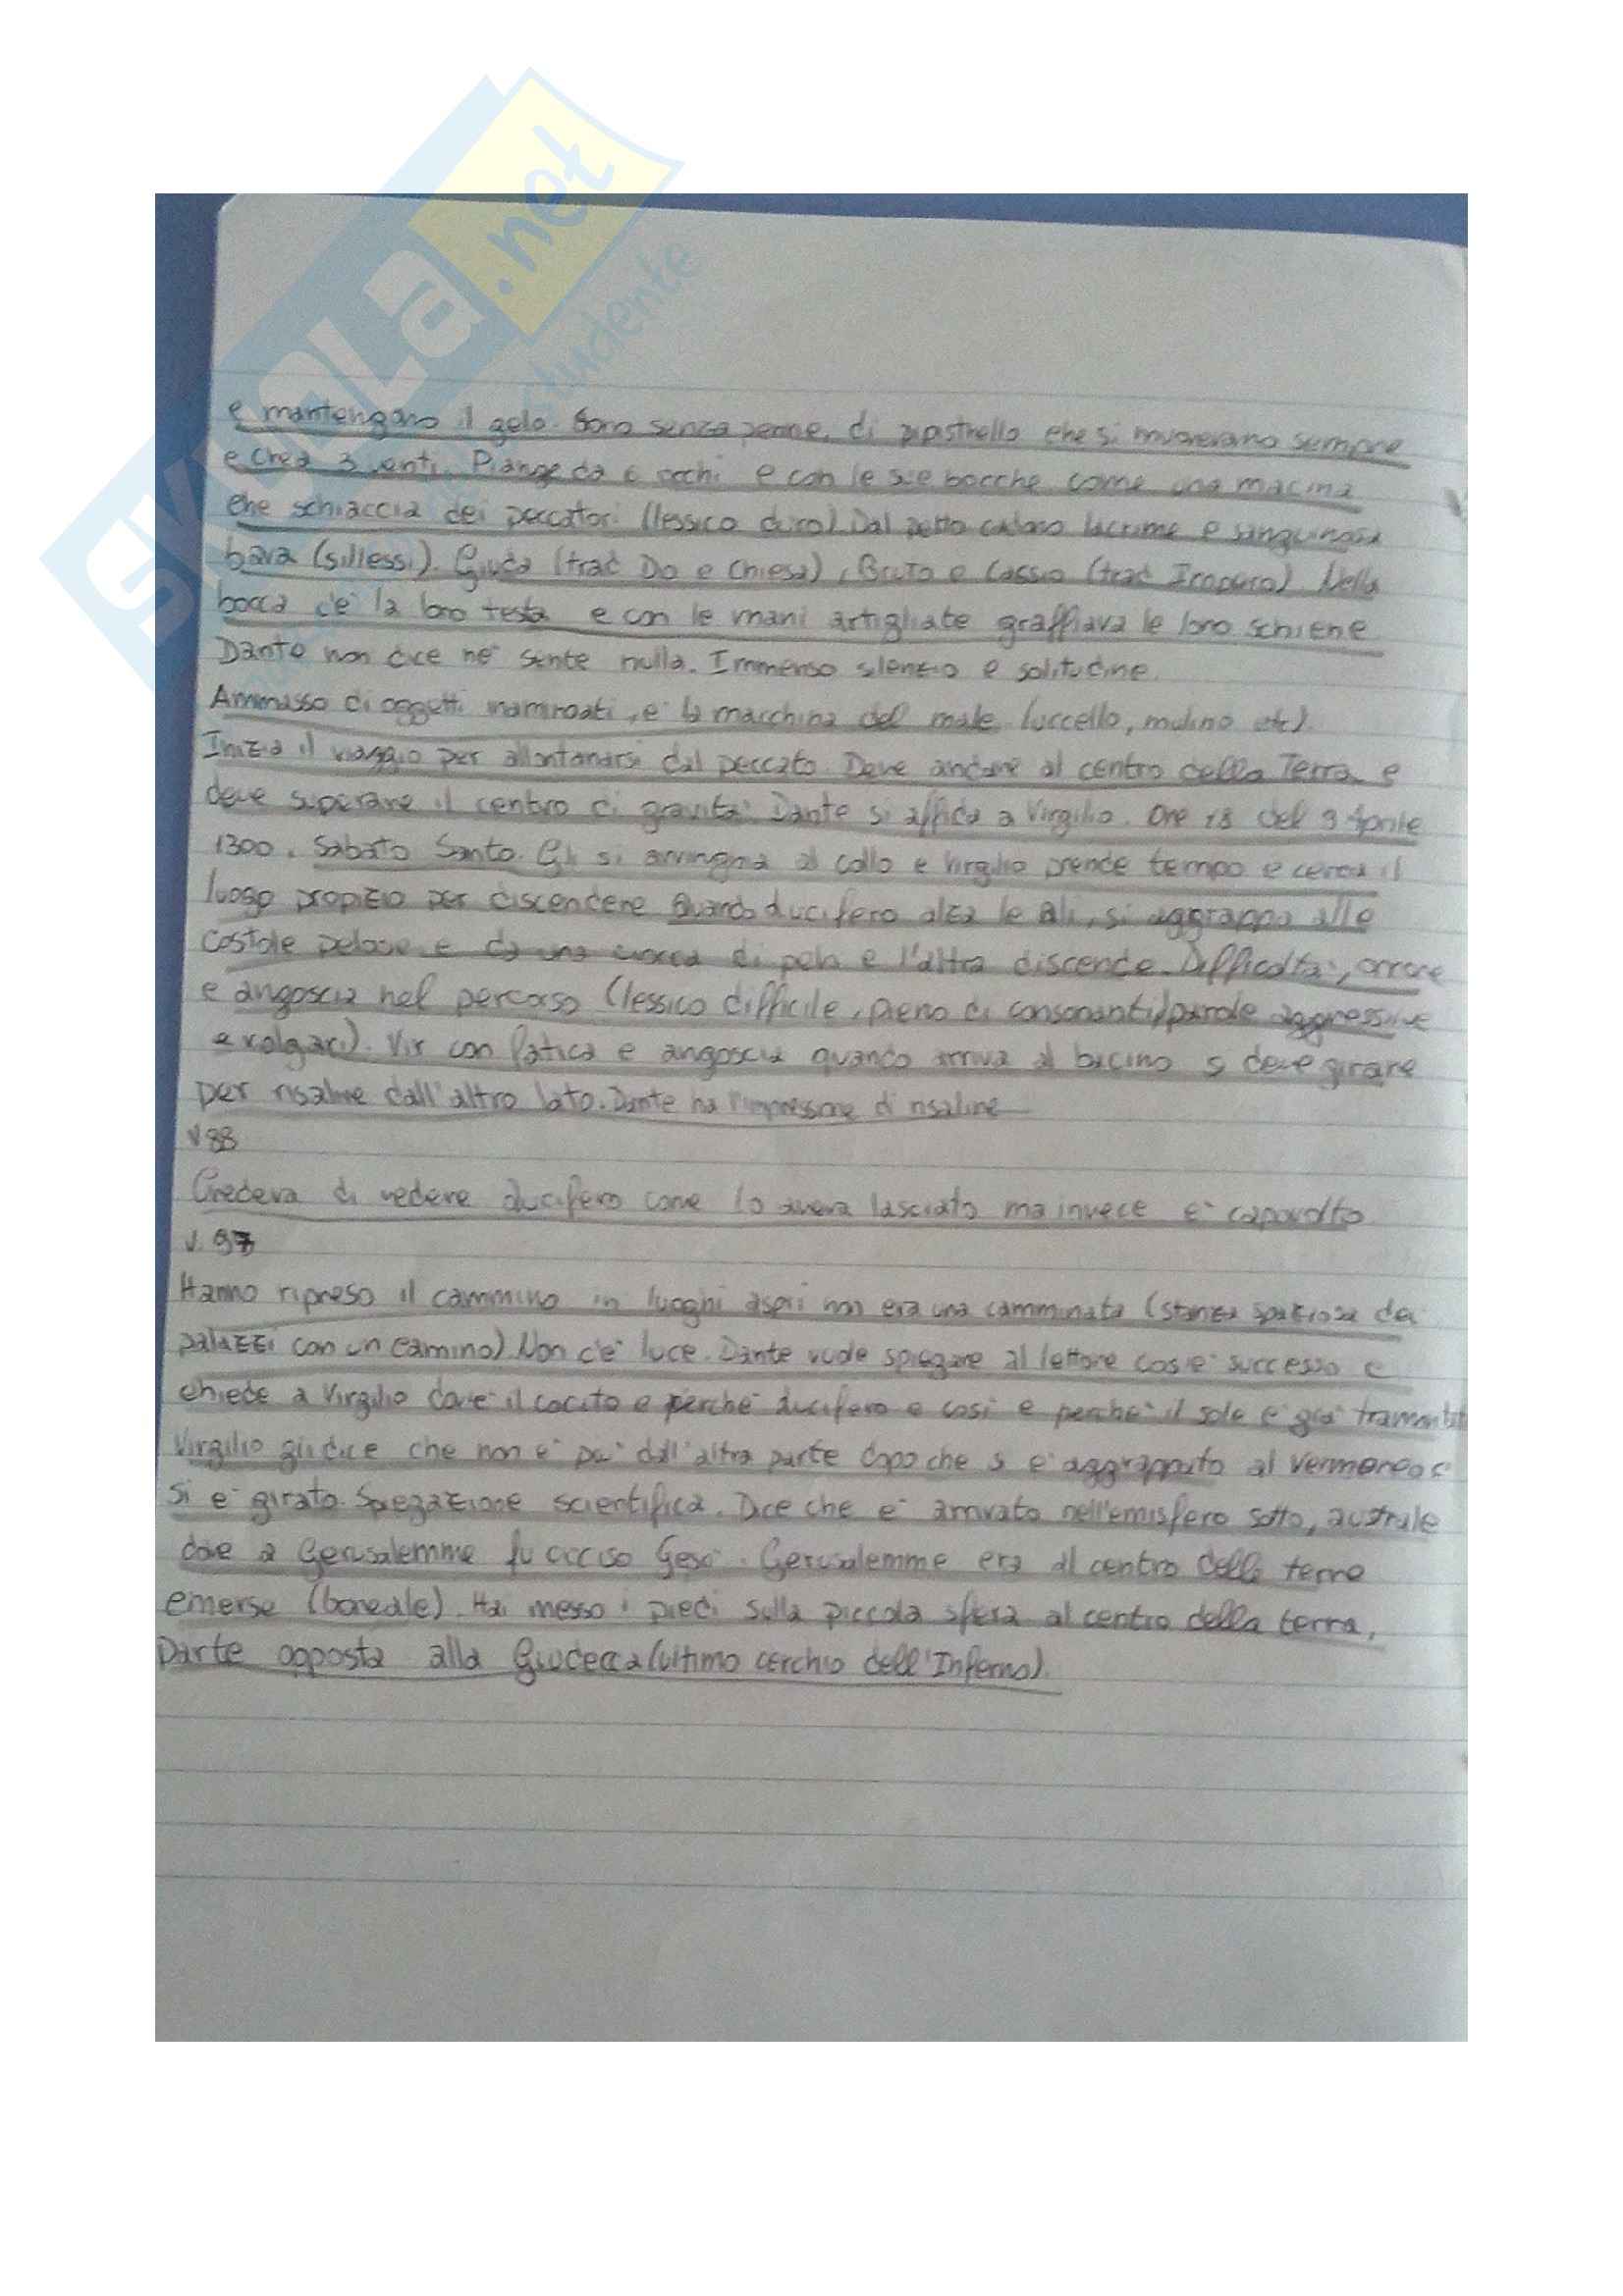 SKUOLA.net
e mantengano il gelo. Sono senza penne, di pipistrello che si muovevano sempre
e crea 3 venti. Piange da 6 occhi e con le sue bocche come una macina
che schiaccia dei peccatori (lessico duro). Dal petto calano lacrime e sanguinosa
bava (sillessi). Giuda (trad Dio e Chiesa), Bruto e Cassio (trad Impero). Nella
bocca c'è la loro testa e con le mani artigliate graffiava le loro schiene
Dante non dice nè sente nulla. Immenso silenzio e solitudine.
Ammasso di oggetti inanimati, è la macchina del male (uccello, mulino etc).
Inizia il viaggio per allontanarsi dal peccato. Deve andare al centro della Terra e
deve superare il centro di gravità. Dante si affida a Virgilio. Ore 18 del 9 Aprile
1300. Sabato Santo. Gli si avvinghia al collo e Virgilio prende tempo e cerca il
luogo propizio per discendere. Quando Lucifero alza le ali, si aggrappa alle
costole pelose e da una ciocca di peli e l'altra discende. Difficoltà, orrore
e angoscia nel percorso (lessico difficile, pieno di consonanti/parole aggressive
e volgari). Vir con fatica e angoscia quando arriva al bacino si deve girare
per risalire dall'altro lato. Dante ha l'impressione di risalire
v 88
Credeva di vedere Lucifero come lo aveva lasciato ma invece è capovolto
v. 97
Hanno ripreso il cammino in luoghi aspri non era una camminata (stanza spaziosa dei
palazzi con un camino). Non c'è luce. Dante vuole spiegare al lettore cos'è successo e
chiede a Virgilio dov'è il cocito e perchè Lucifero è così e perchè il sole è già tramontat
Virgilio gli dice che non è più dall'altra parte dopo che si è aggrappato al
si è girato. Spiegazione scientifica. Dice che è arrivato nell'emisfero sotto, australe
dove a Gerusalemme fu ucciso Gesù. Gerusalemme era al centro delle terre
emerse (boreale). Hai messo i piedi sulla piccola sfera al centro della terra,
parte opposta alla Giudecca (ultimo cerchio dell'Inferno).